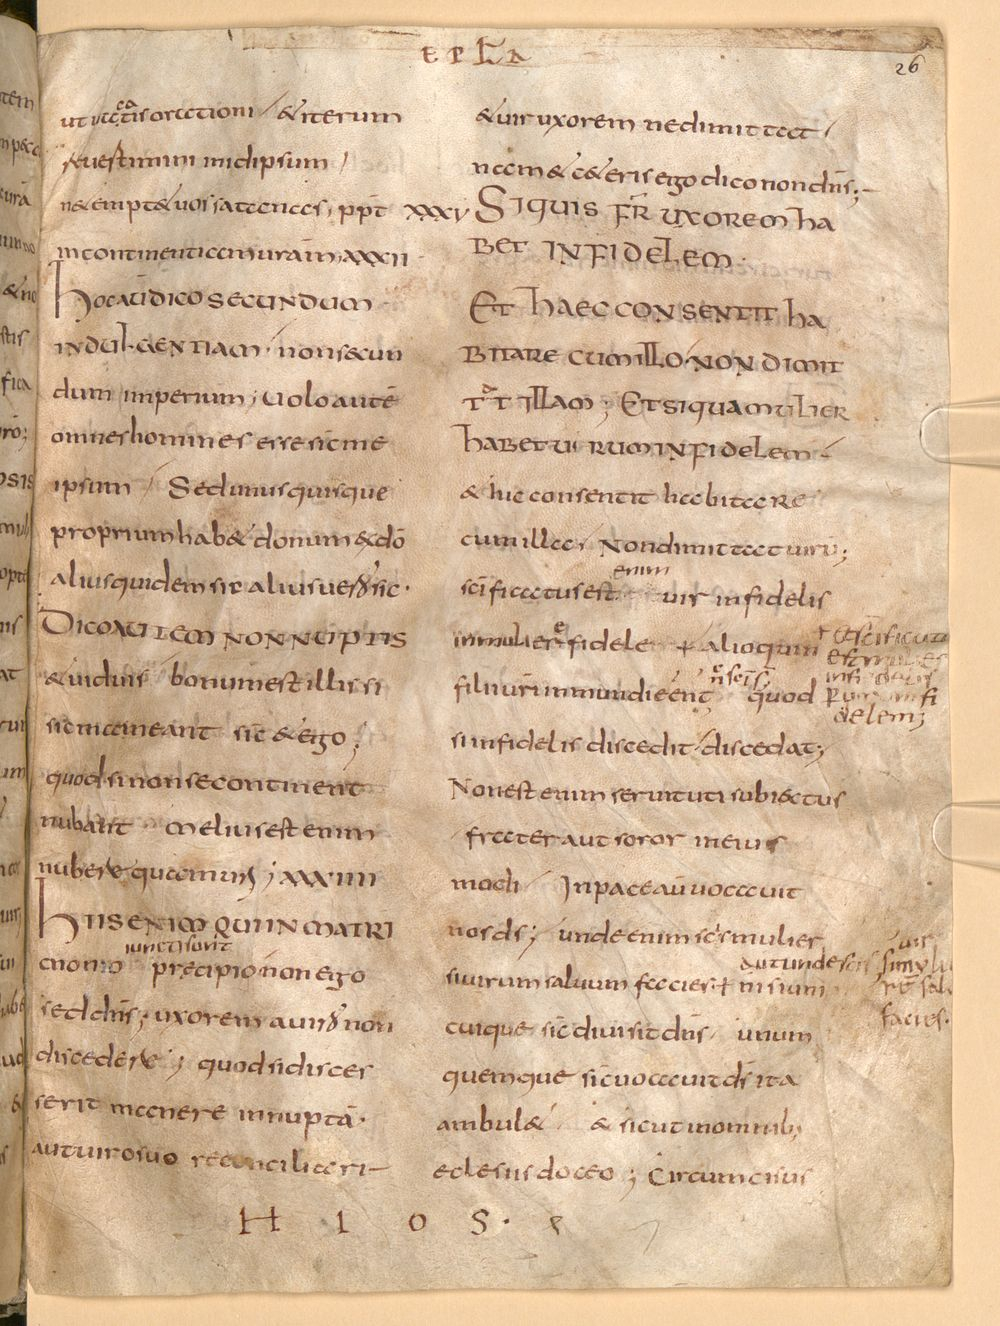 EPLA
26
ut uacetis orationi / & iterum
reuestimini inidipsum /
ne tempt& uos satanas; ppt xxxv
incontinentiam uram; xxxii
hoc aut dico secundum
indulgentiam · non secun
dum imperium; Uolo autē
omnes homines esse sic me
ipsum / Sed unusquisque
proprium hab& donum & dō
alius quidem sic alius uero sic ·
Dico autem non nuptis
& uiduis bonum est illis si
sic maneant sic & ego;
quod si non se continent
nubant · melius est enim
nubere quam uri; xxxiiii
His enim qui in matri
iuncti sunt
monio precipio non ego
sed dns; uxorem a uiro non
discedere; quod si disces
serit manere innuptā ·
aut uiro suo reconciliari
& uir uxorem ne dimittat /
nam & ceteris ego dico non dns;
Si quis fr uxorem ha
bet infidelem ·
Et haec consentit ha
bitare cum illo · non dimit
tat illam; Et si qua mulier
habet uirum infidelem
& hic consentit habitare
cum illa / Non dimittat uirū;
enim
scificatus est uir infidelis
in muliere fidele alioquin
filii uri inmundi eēnt quod
si infidelis discedit / discedat;
Non est enim seruituti subiectus
frater aut soror in eius
modi / In pace aū uocauit
nos ds; unde enim scis mulier
aut unde scis
si uirum saluum facies nisi uni
cuique sic diuisit dns / unum
quemque sic uocauit ds ita
ambul& & sicut in omnib;
eclesiis doceo; Circumcisus
infi delis
delem;
uir
facies ·
H I O S ·